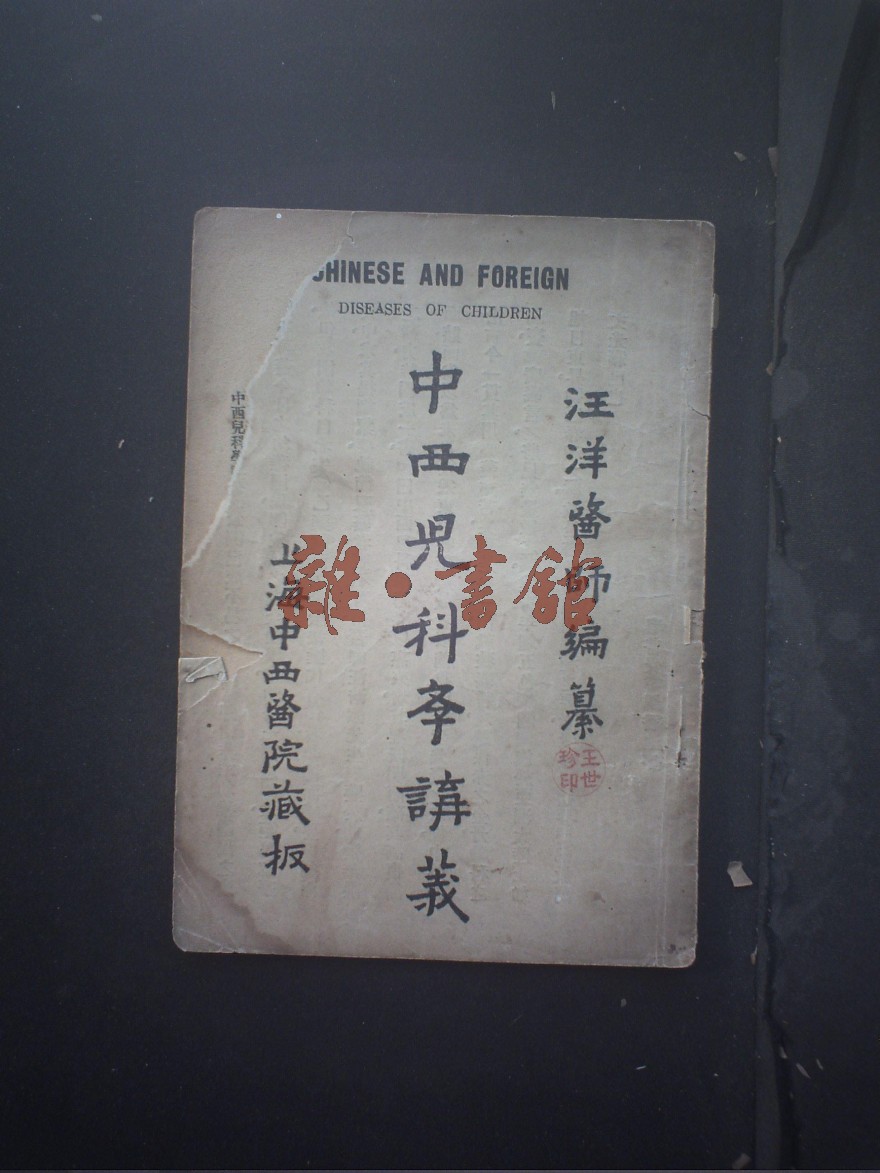 CHINESE AND FOREIGN
DISEASES OF CHILDREN
汪洋醫師編纂
王世珍印
中西児科斈講義
上海中西醫院藏板
中西兒科
雜·書館